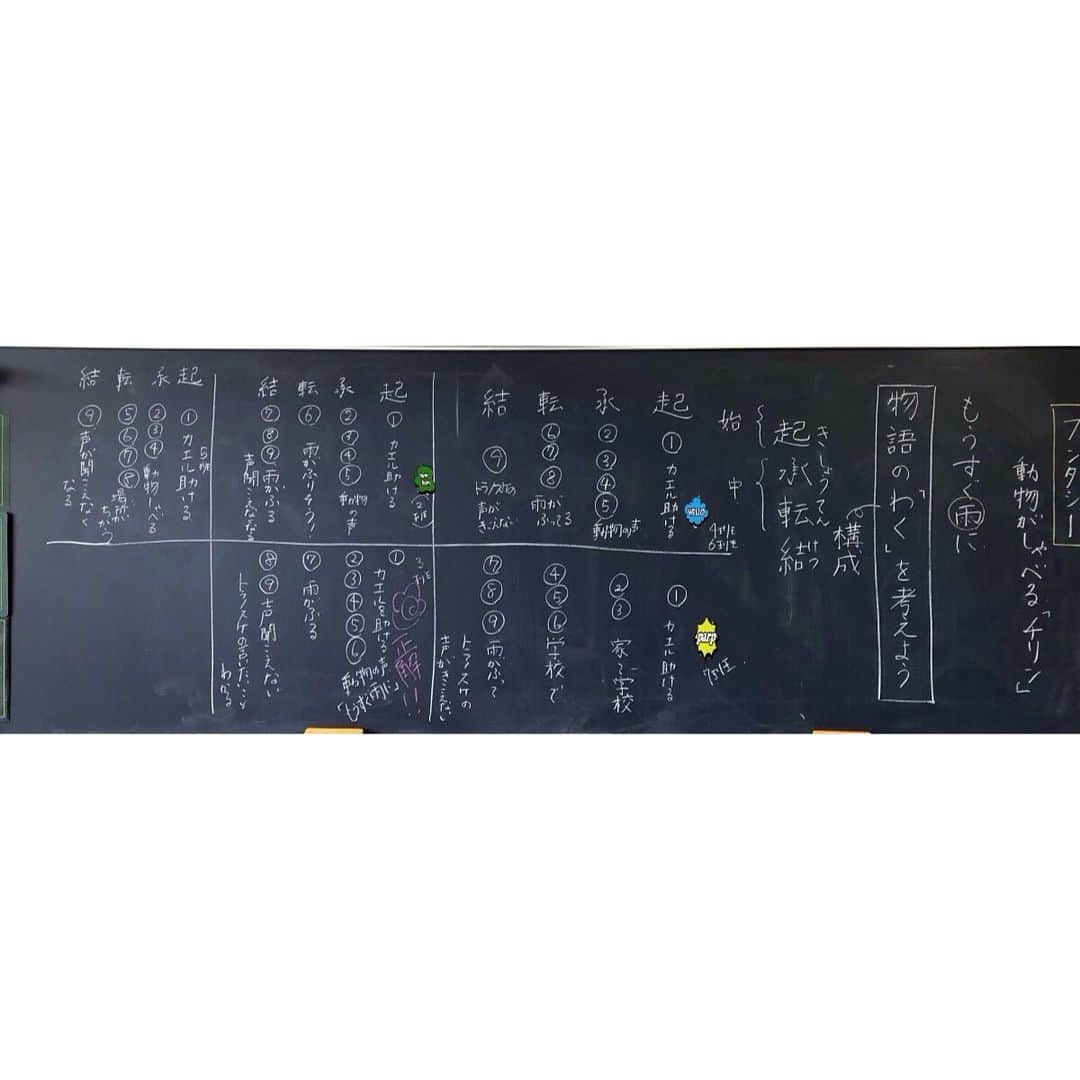 ファンタジー
動物がしゃべる「チリン」
もうすぐ雨に
物語の「わく」を考えよう
構成
きしょうてんけつ
起承転結
始
中
4班
6班
HELLO
起 ① カエル助ける
承 ②③④⑤ 動物の声
転 ⑥⑦⑧ 雨がふってる
結 ⑨ トラノスケの声がきこえない
7班
parp
① カエル助ける
②③ 家〜学校
④⑤⑥ 学校で
⑦⑧⑨ 雨がふって
トラノスケの声がきこえない
2班
起 ① カエル助ける
承 ②③④⑤ 動物の声
転 ⑥ 雨がふりそう!
結 ⑦⑧⑨ 雨がふる
声聞こえなくなる
3班
正解!!
① カエルを助ける
②③④⑤⑥ 動物の声
「もうすぐ雨に」
⑦ 雨がふる
⑧⑨ 声聞こえない
トラノスケの言いたいことわかる
5班
起 ① カエル助ける
承 ②③④ 動物しゃべる
転 ⑤⑥⑦⑧ 場所がちがう
結 ⑨ 声が聞こえなくなる